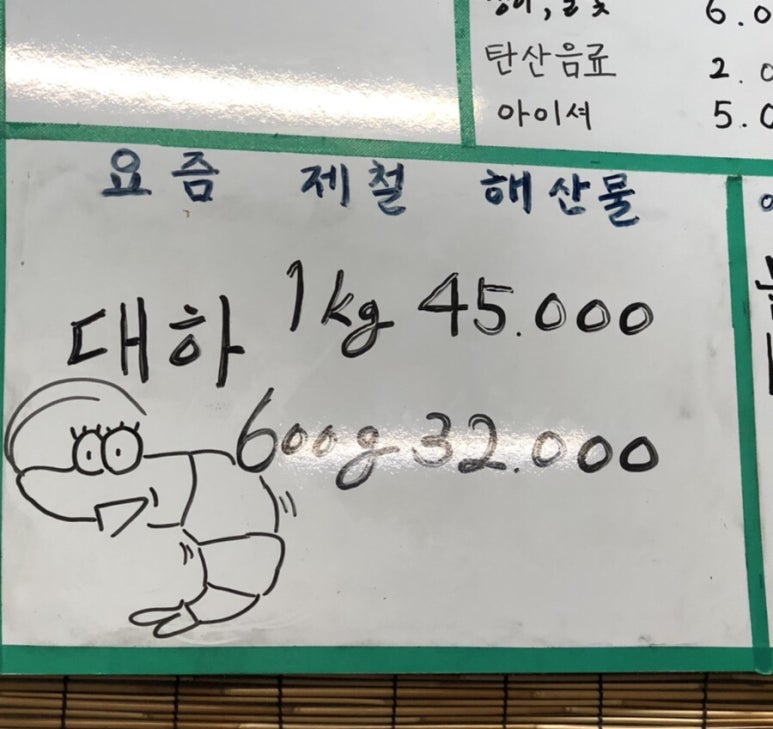 탄산음료 2.0
아이셔 5.0
요즘 제철 해산물
대하 1kg 45.000
600g 32.000